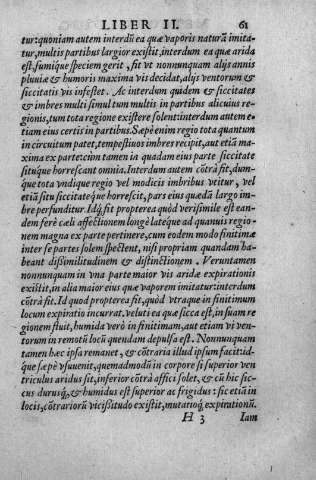 LIBER II. 61
tur: quoniam autem interdũ ea quæ vaporis naturã imita
tur, multis partibus largior existit, interdum ea quæ arida
est, fumiq́ue speciem gerit, fit vt nonnunquam alijs annis
pluuiæ & humoris maxima vis decidat, alijs ventorum &
siccitatis vis infestet. Ac interdum quidem & siccitates
& imbres multi simul tum multis in partibus alicuius re-
gionis, tum tota regione existere solent: interdum autem e-
tiam eius certis in partibus. Sæpè enim regio tota quantum
in circuitum patet, tempestiuos imbres recipit, aut etiã ma-
xima ex parte: cùm tamen in quadam eius parte siccitate
sitúque horrescant omnia. Interdum autem cõtrà fit, dum-
que tota vndique regio vel modicis imbribus vtitur, vel
etiã situ siccitatéque horrescit, pars eius quædã largo im-
bre perfunditur. Idq́; fit propterea quòd verisimile est ean-
dem ferè cæli affectionem longè latéque ad quamuis regio-
nem magna ex parte pertinere, cum eodem modo finitimæ
inter se partes solem spectent, nisi propriam quandam ha-
beant dissimilitudinem & distinctionem. Veruntamen
nonnunquam in vna parte maior vis aridæ expirationis
existit, in alia maior eius quæ vaporem imitatur: interdum
cõtrà fit. Id quod propterea fit, quòd vtraque in finitimum
locum expiratio incurrat. veluti ea quæ sicca est, in suam re
gionem fluit, humida verò in finitimam, aut etiam vi ven-
torum in remotũ locũ quendam depulsa est. Nonnunquam
tamen hæc ipsa remanet, & cõtraria illud ipsum facit: id-
que sæpè vsuuenit, quemadmodũ in corpore si superior ven
triculus aridus sit, inferior cõtrà affici solet, & cũ hic sic-
cus durusq́;, & humidus est superior ac frigidus: sic etiã in
locis, cõtrariorũ vicissitudo existit, mutatioq́; expirationũ.
H 3 Iam